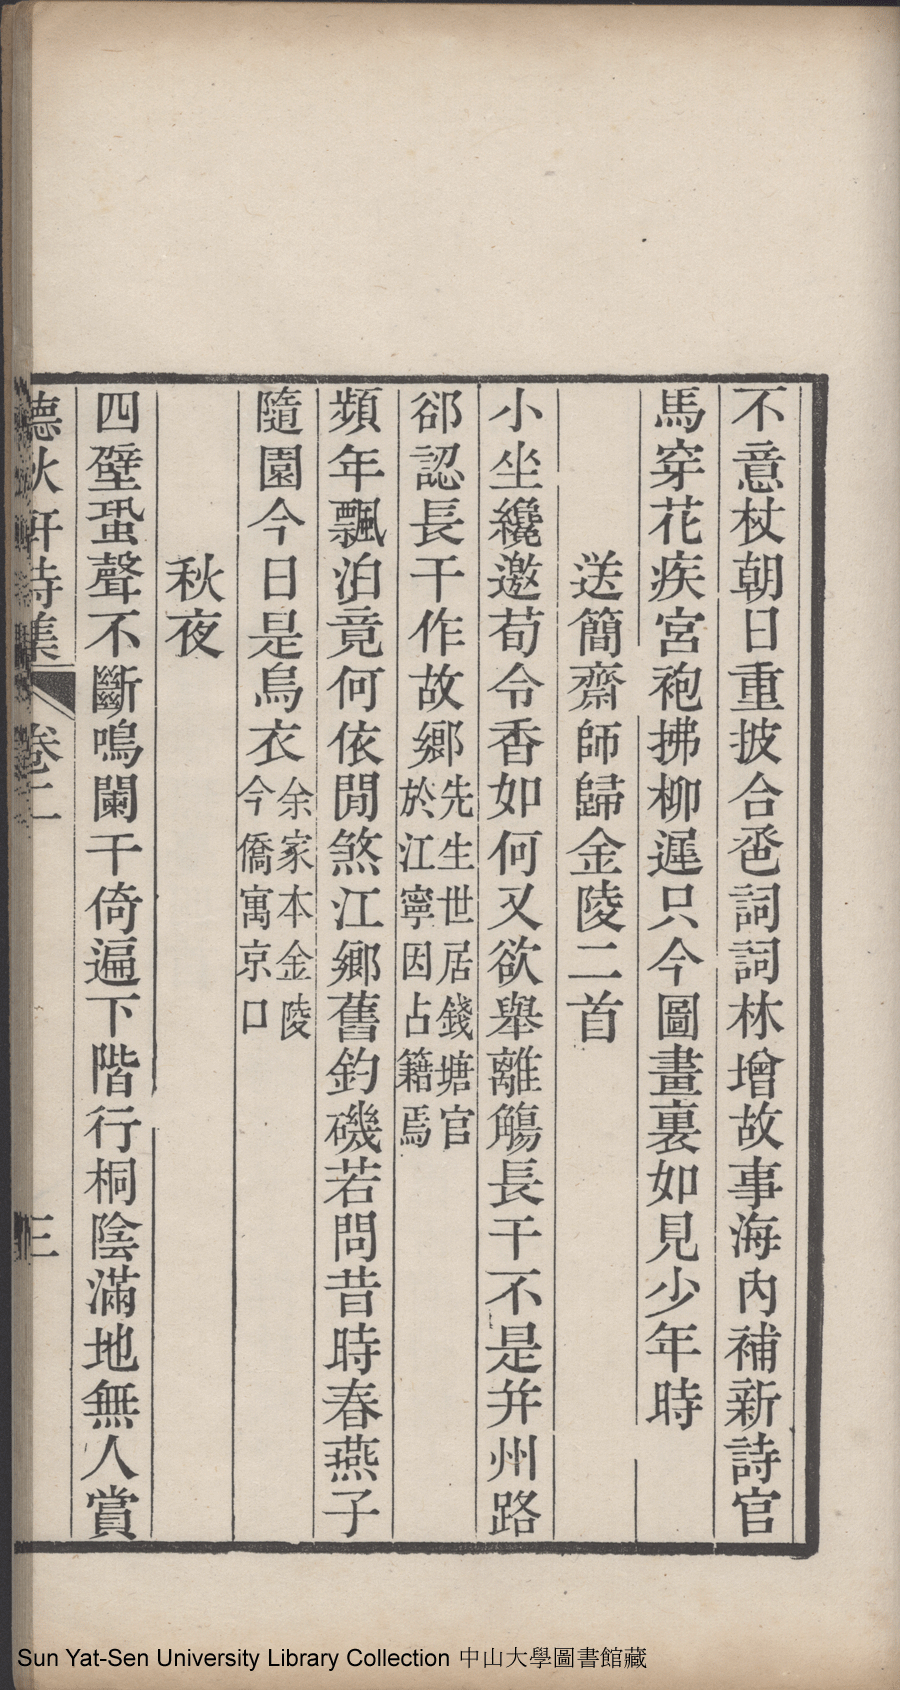 不意杖朝日重披合巹詞詞林增故事海內補新詩官
馬穿花疾宮袍拂柳遲只今圖畫裏如見少年時
送簡齋師歸金陵二首
小坐纔邀荀令香如何又欲舉離觴長干不是并州路
郤認長干作故鄉先生世居錢塘官
於江寧因占籍焉
頻年飄泊竟何依閒煞江鄉舊釣磯若問昔時春燕子
隨園今日是烏衣余家本金陵
今僑寓京口
秋夜
四壁蛩聲不斷鳴闌干倚遍下階行桐陰滿地無人賞
德秋軒詩集 卷二 三
Sun Yat-Sen University Library Collection 中山大學圖書館藏